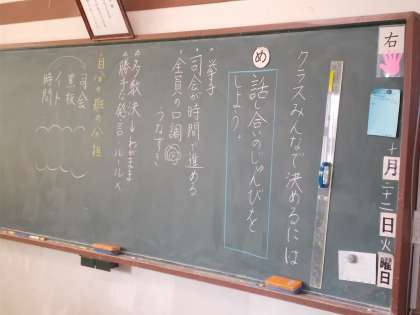 右
十月二十二日火曜日
クラスみんなで決めるには
め
話し合いのじゅんびを
しよう。
・挙手
・司会が時間で進める
・全員の口調
うなずき
・多数決↓わがまま
・勝手な発言のルール×
司会
黒板
時間